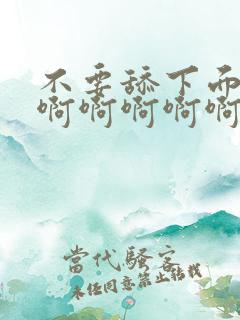 不要舔下面
啊啊啊啊啊
當代騷客
未經同意禁止轉載